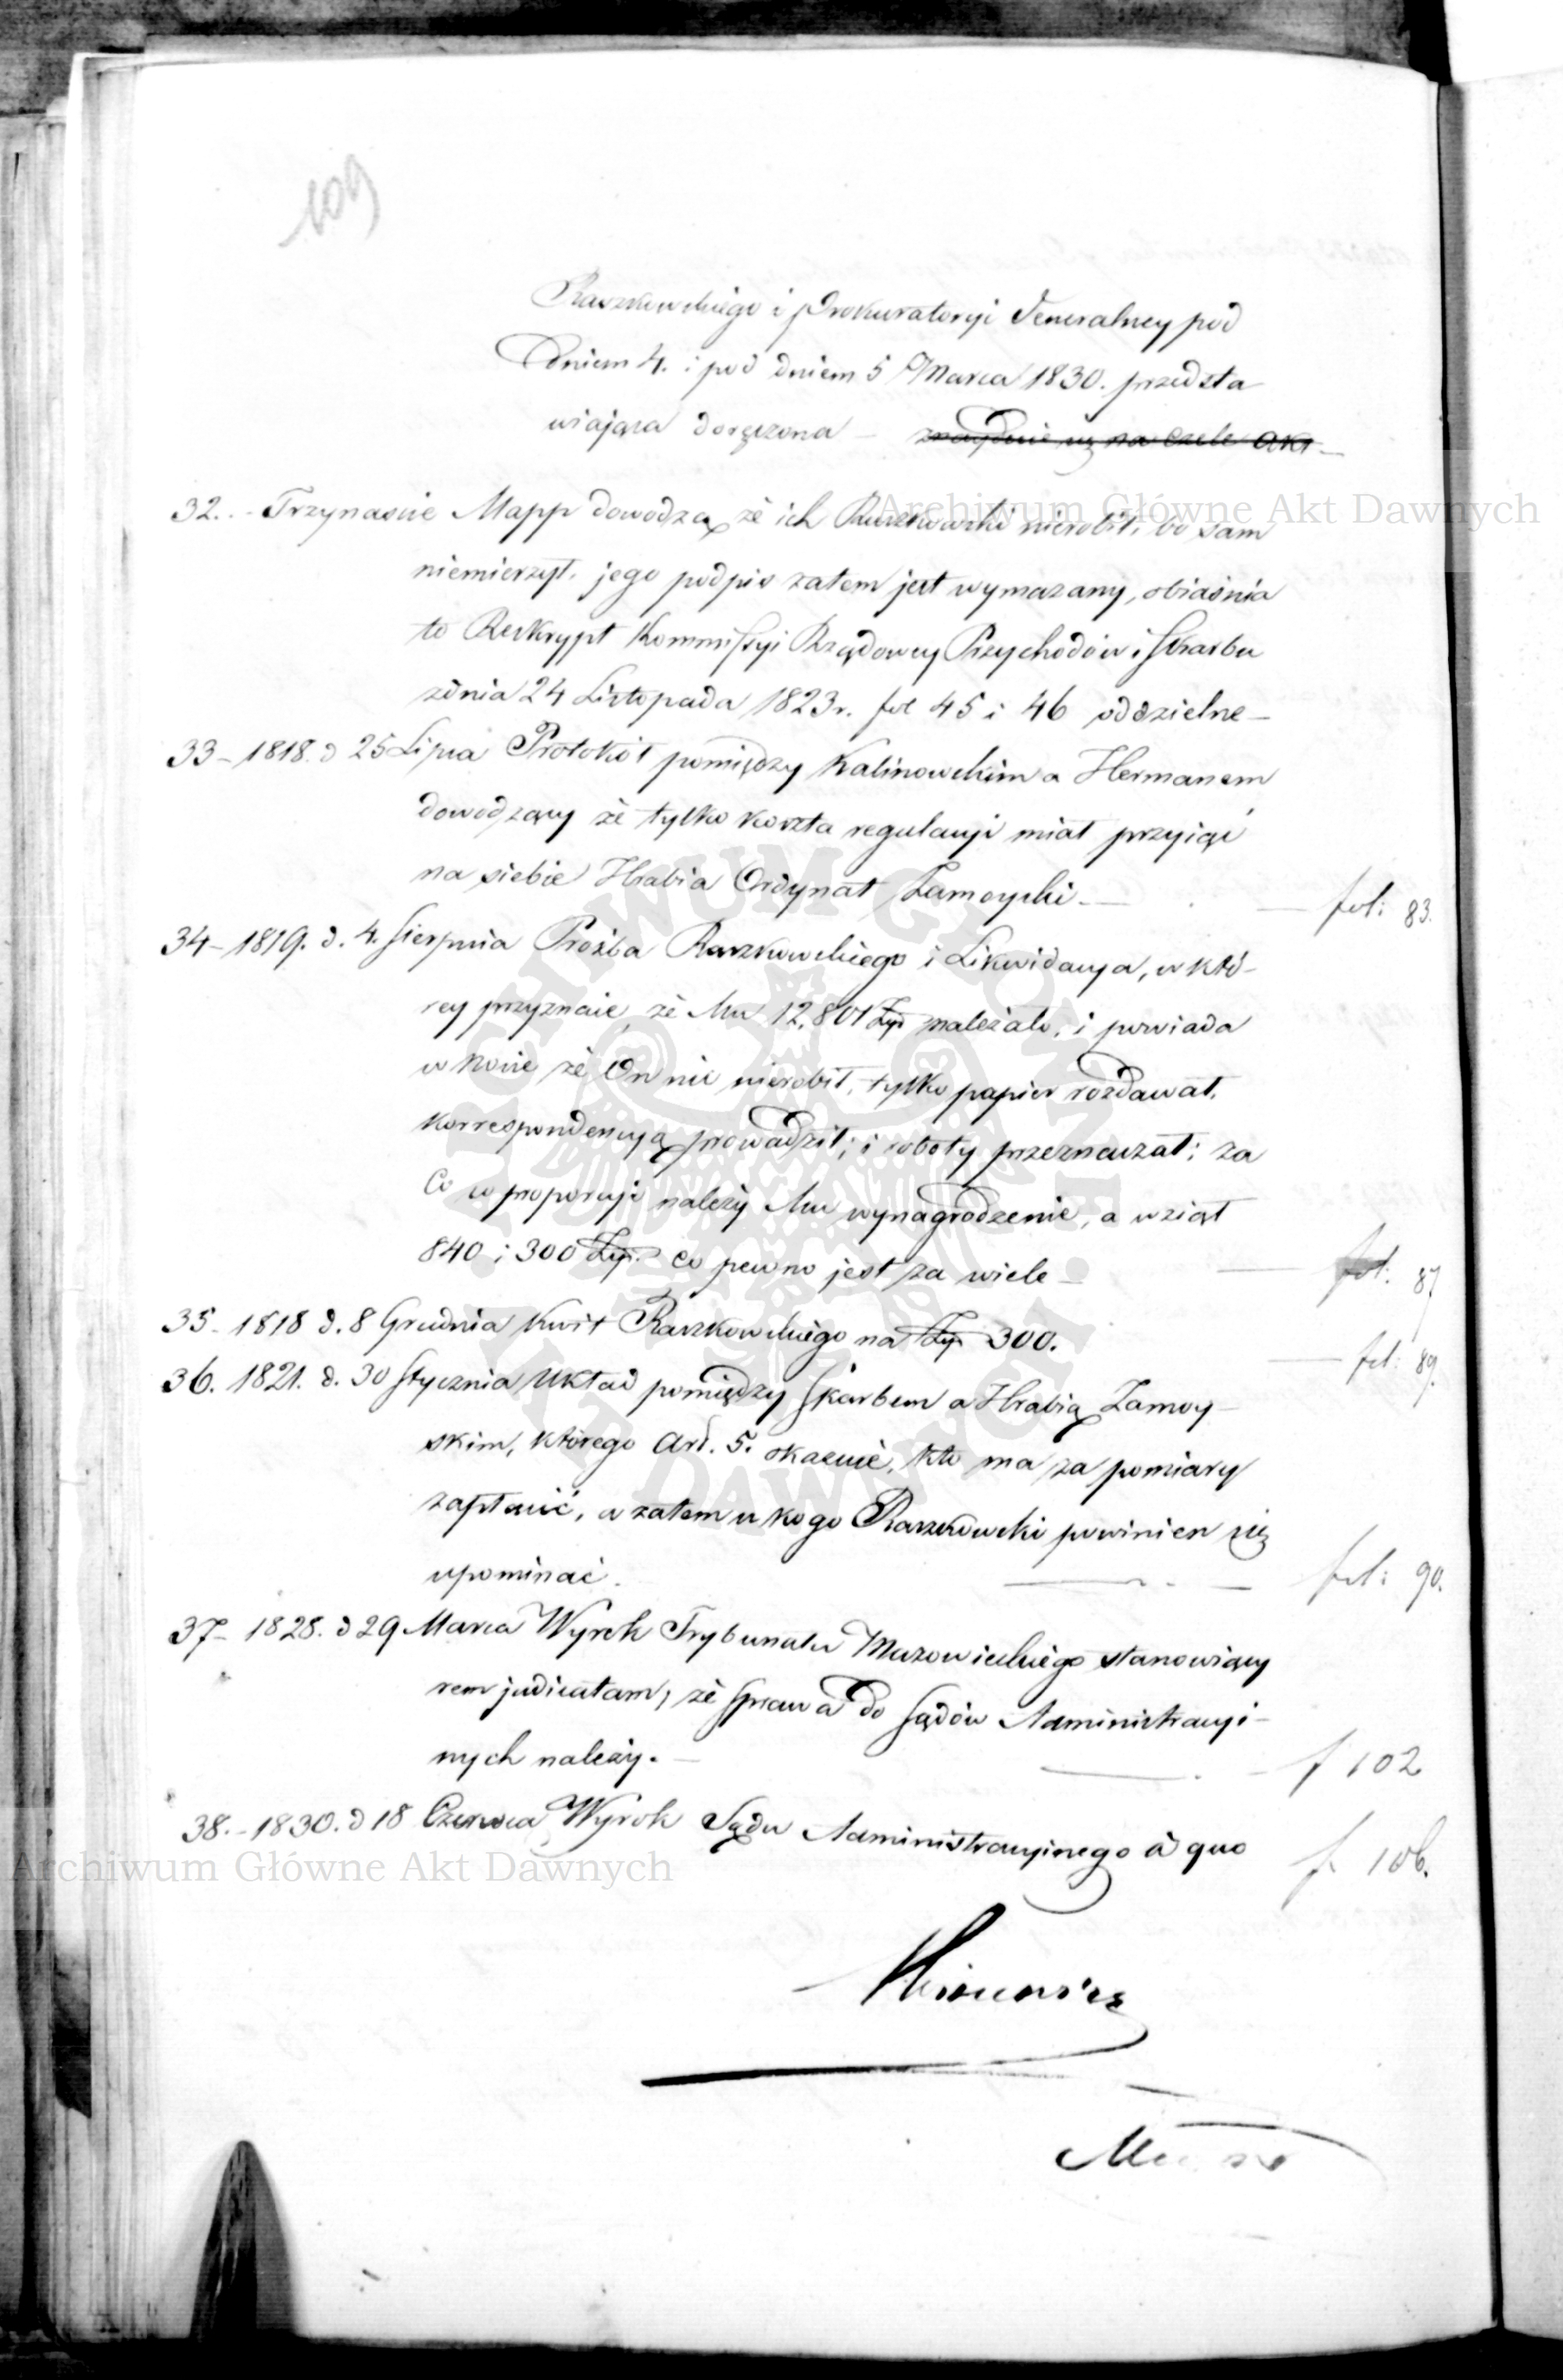 109
Raszkowskiego i Prokuratoryi Generalney pod
Dniem 4. i pod dniem 5 Marca 1830. przedsta
wiająca doręczona – znayduie się na czele akt –
32. – Trzynaście Mapp dowodzą że ich Raszkowski nierobił, bo sam
niemierzył. jego podpis zatem jest wymazany, obiaśnia
to Reskrypt Kommissyi Rządowey Przychodów i Skarbu
zdnia 24 Listopada 1823 r. fol 45 i 46 oddzielne –
33 – 1818. d 25 Lipca Protokół pomiędzy Kalinowskim a Hermanem
dowodzący że tylko koszta regulacyi miał przyiąć
na siebie Hrabia Ordynat Zamoyski. – fol: 83.
34 – 1819. d. 4. Sierpnia Prośba Raszkowskiego i Likwidacya, w któ-
rey przyznaie, że Mu 12,801 Złp należało, i powiada
w końcu że On nic nierobił, tylko papier rozdawał,
korrespondencyą prowadził; i roboty przeznaczał; za
co w proporcyi należy Mu wynagrodzenie, a wziął
840 i 300 Złp. co pewno jest za wiele – fol: 87
35 – 1818 d. 8 Grudnia Kwit Raszkowskiego na Złp 300. – fol: 89.
36. 1821. d. 30 Stycznia Układ pomiędzy Skarbem a Hrabią Zamoy-
skim, którego Art. 5. okazuie, kto ma za pomiary
zapłacić, a zatem u kogo Raszkowski powinien się
upominać. – fol: 90.
37 – 1828. d 29 Marca Wyrok Trybunału Mazowieckiego stanowiący
rem judicatam, że sprawa do Sądów Administracyi-
nych należy. – f 102
38. – 1830. d 18 Czerwca Wyrok Sądu Administracyinego à quo f. 106.
Archiwum Główne Akt Dawnych
Archiwum Główne Akt Dawnych
ARCHIWUM GŁÓWNE AKT DAWNYCH